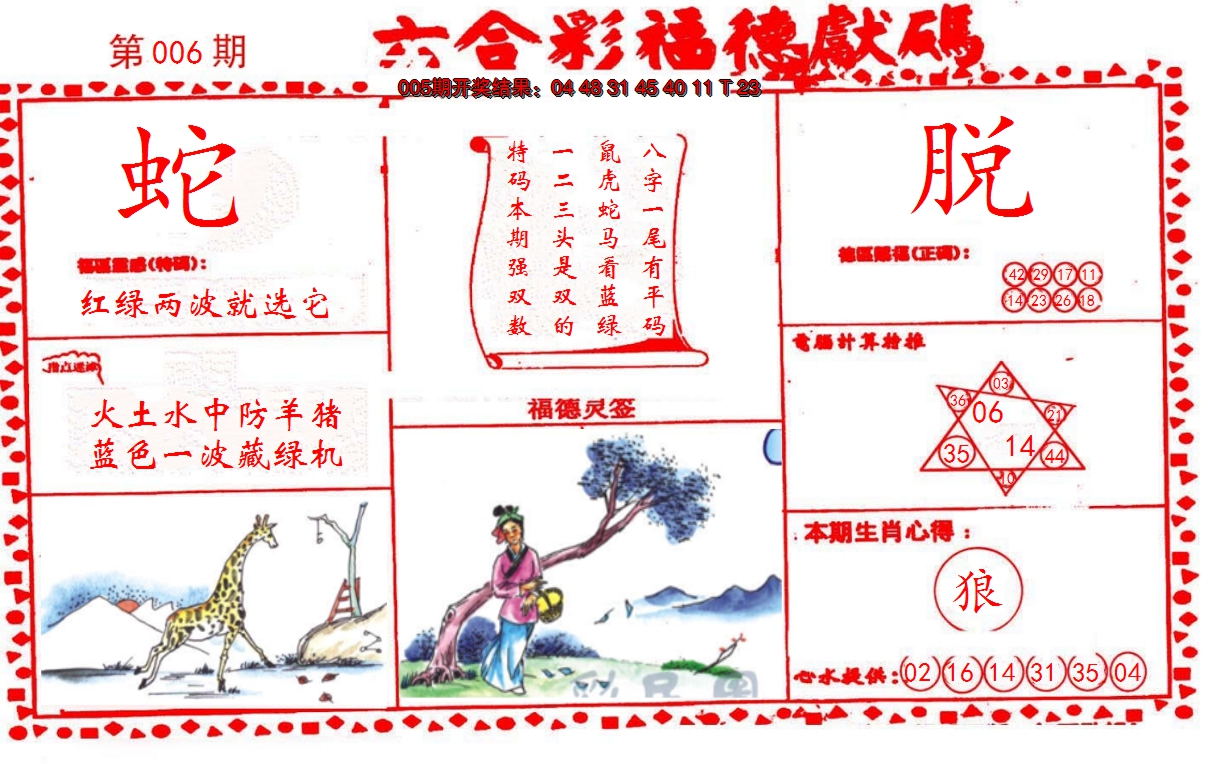 第 006 期
六合彩福德獻碼
005期开奖结果：04 48 31 45 40 11 T 23
蛇
福區靈感(特碼)：
红绿两波就选它
指点迷津
火土水中防羊猪
蓝色一波藏绿机
八字一尾有平码
鼠虎蛇马看蓝绿
一二三头是双的
特码本期强双数
福德灵签
脱
德區賜福(正碼)：
42 29 17 11
14 23 26 18
電腦計算特推
03
36 06 21
35 14 44
10
本期生肖心得：
狼
心水提供：02 16 14 31 35 04